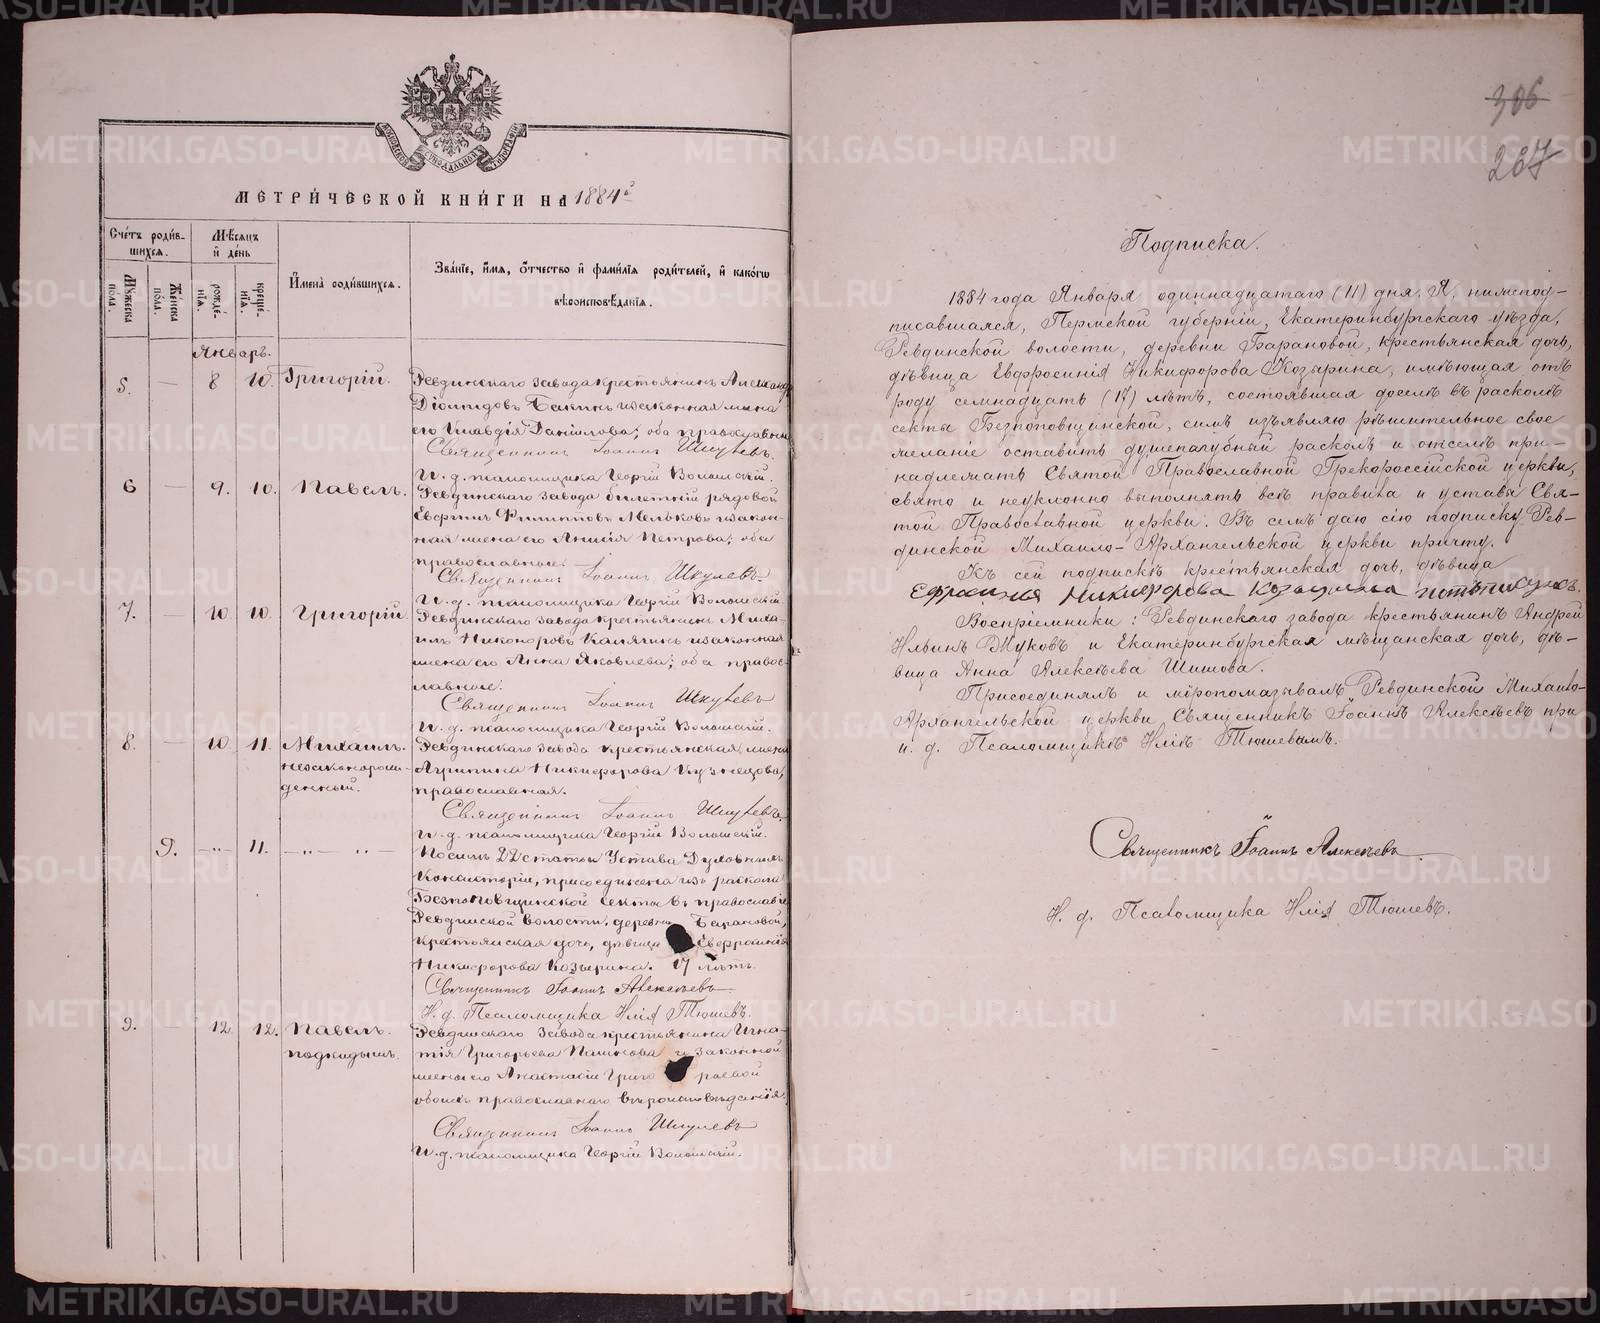 МОСКОВСКОЙ СѴНОДАЛЬНОЙ ТИПОГРАФІИ
МЕТРИ́ЧЕСКОЙ КНИ́ГИ НА 1884й
Счётъ роди́вшихся.
Мѹ́жеска по́ла.
Же́нска по́ла.
Мѣ́сяцъ и де́нь
рожде́нїя.
креще́нїя.
И́мена̀ роди́вшихся.
Зва́нїе, и́мя, ѻ́тчество и фами́лїя роди́телей, и како́гѡ вѣроисповѣ́данїя.
Январь.
5. — 8 10. Григорій.
Ревдинскаго завода крестьянинъ Александръ
Діомидовъ Бакинъ и законная жена
его Клавдія Даніилова; оба православные
Священникъ Іоаннъ Шкулевъ.
И. д. псаломщика Георгій Волынскій.
6 — 9. 10. Павелъ.
Ревдинскаго завода билетній рядовой
Евфтих Филипповъ Мельковъ и закон-
ная жена его Анисія Петрова; оба
православные.
Священникъ Іоаннъ Шкулевъ.
И. д. псаломщика Георгій Волынскій.
7. — 10. 10. Григорій
Ревдинскаго завода крестьянинъ Миха-
илъ Никоноровъ Капягинъ и законная
жена его Анна Яковлева; оба правос-
лавные.
Священникъ Іоаннъ Шкулевъ
И. д. псаломщика Георгій Волынскій.
8. — 10. 11. Михаилъ.
незаконорож-
денный.
Ревдинскаго завода крестьянская жена
Агрипина Никифорова Кузнецова,
православная.
Священникъ Іоаннъ Шкулевъ.
И. д. псаломщика Георгій Волынскій.
9. —"— 11. —"— "—
По силѣ 22 статьи Устава Духовныхъ
Консисторій, присоединена изъ раскола
Безпоповщинской секты въ православіе
Ревдинской волости, деревни Барановой,
крестьянская дочь, дѣвица Евфросинія
Никифорова Козырина. 17 лѣтъ.
Священникъ Іоаннъ Алексѣевъ
И. д. Псаломщика Илія Тюшевъ.
9. — 12. 12. Павелъ.
подкидышъ.
Ревдинскаго завода крестьянина Игна-
тія Григорьева Пашкова и законной
жены его Анастасіи Григо раевой
обоихъ православнаго вѣроисповѣданія.
Священникъ Іоаннъ Шкулевъ
И. д. псаломщика Георгій Волынскій.
306
267
Подписка.
1884 года Января одиннадцатаго (11) дня. Я, нижепод-
писавшаяся, Пермской губерніи, Екатеринбургскаго уѣзда,
Ревдинской волости, деревни Барановой, крестьянская дочь,
дѣвица Евфросинія Никифорова Козырина, имѣющая отъ
роду семнадцать (17) лѣтъ, состоявшая доселѣ въ расколѣ
секты Безпоповщинской, симъ изъявляю рѣшительное свое
желаніе оставить душепагубный расколъ и отселѣ при-
надлежать Святой Православной Грекороссійской церкви,
свято и неуклонно выполнять всѣ правила и уставы Свя-
той Православной церкви. Въ семъ даю сію подписку Рев-
динской Михаило-Архангельской церкви причту.
Къ сей подпискѣ крестьянская дочь, дѣвица
Ефросинья Никифорова Козырина подписуюсь.
Воспріемники: Ревдинскаго завода крестьянинъ Андрей
Ильинъ Жуковъ и Екатеринбургская мѣщанская дочь, дѣ-
вица Анна Алексѣева Шишова.
Присоединялъ и мѵропомазывалъ Ревдинской Михаило-
Архангельской церкви, Священникъ Іоаннъ Алексѣевъ при
и. д. Псаломщикѣ Иліѣ Тюшевымъ.
Священникъ Іоаннъ Алексѣевъ
И. д. Псаломщика Илія Тюшевъ.
METRIKI.GASO-URAL.RU